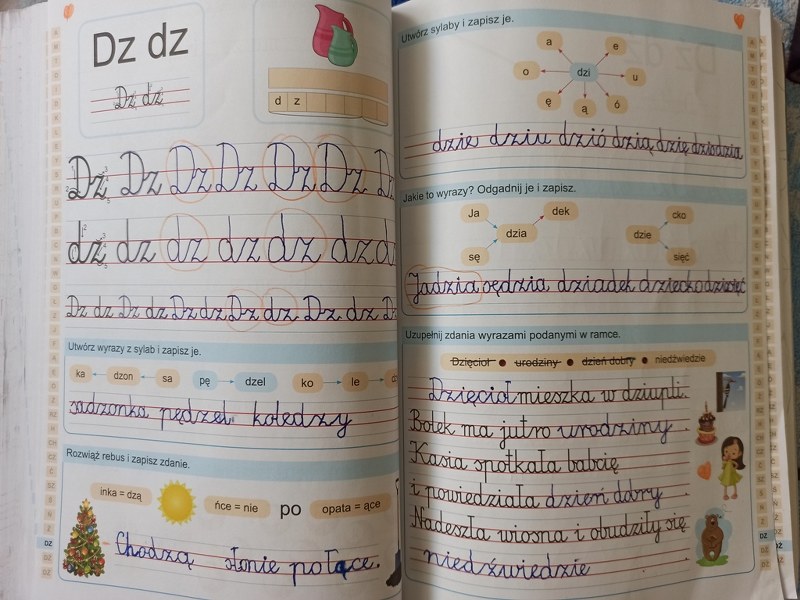 Dz dz
Dz dz
d z
Dz Dz Dz Dz Dz Dz
dz dz dz dz dz dz
Dz dz Dz dz Dz dz Dz dz Dz dz
Utwórz wyrazy z sylab i zapisz je.
ka dzon sa pę dzel ko le
sadzonka pędzel kolędzy
Rozwiąż rebus i zapisz zdanie.
inka = dzą ńce = nie po opata = ące
Chodzą słonie połące.
Utwórz sylaby i zapisz je.
a e
o dzi u
ę ą ó
dzie dziu dzió dzią dzię
Jakie to wyrazy? Odgadnij je i zapisz.
Ja dek cko
dzia dzie
sę sięć
Jadzia sędzia dziadek dziecko dziesięć
Uzupełnij zdania wyrazami podanymi w ramce.
Dzięcioł urodziny dzień dobry niedźwiedzie
Dzięcioł mieszka w dziupli.
Bolek ma jutro urodziny.
Kasia spotkała babcię
i powiedziała dzień dobry.
Nadeszła wiosna i obudziły się
niedźwiedzie